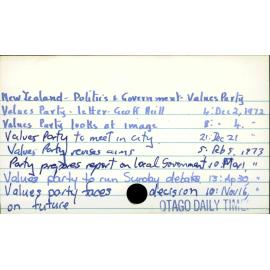 New Zealand - Politics & Government - Values Party
Values Party - letter. Geoff Neill 4: Dec 2, 1972
Values Party looks at image 8: " 4. "
Values Party to meet in city 21. Dec 21 "
Values Party revises aims 5. Feb 9, 1973
Party prepares report on Local Government 10: Mar 1, "
Values party to run Sunday debate 13: Ap 30, "
Values party faces decision 10: Nov 16, "
on future
OTAGO DAILY TIMES